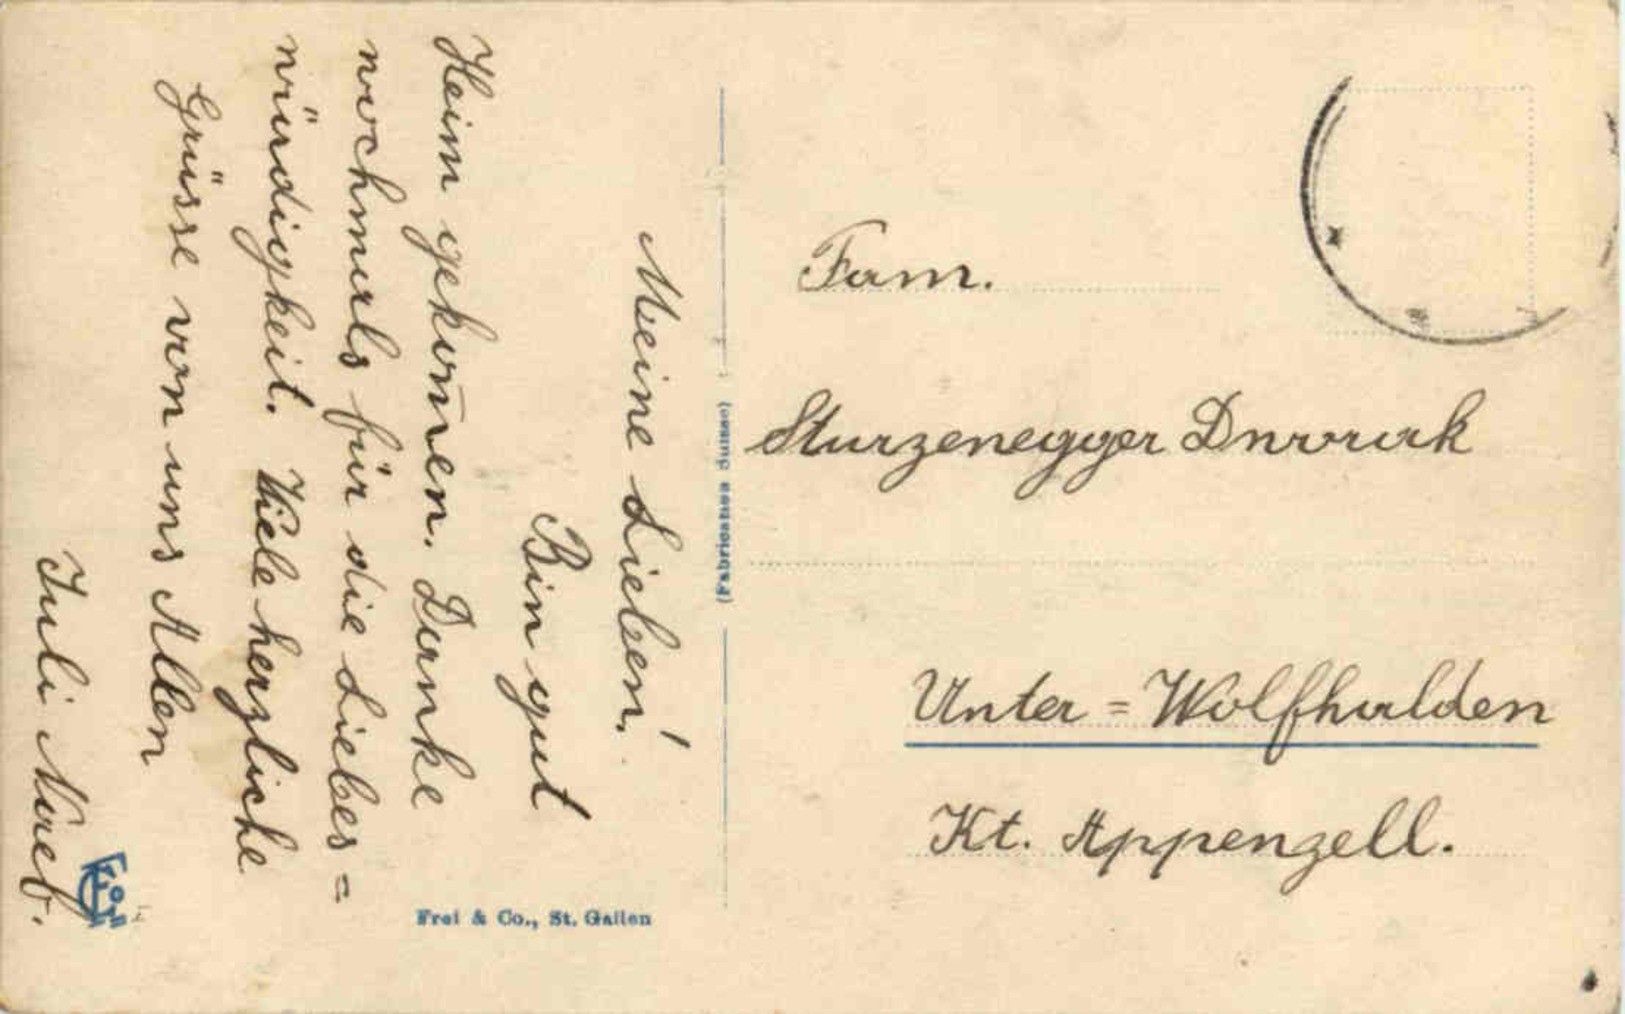 Meine Lieben!
Bin gut
Heim gekom̄en. Danke
nochmals für die Liebes=
würdigkeit. Viele herzliche
Grüsse von uns Allen
Juli Noreb.
Frei & Co., St. Gallen
(Fabrication Suisse)
Fam.
Sturzenegger Dworak
Unter=Wolfhalden
Kt. Appenzell.